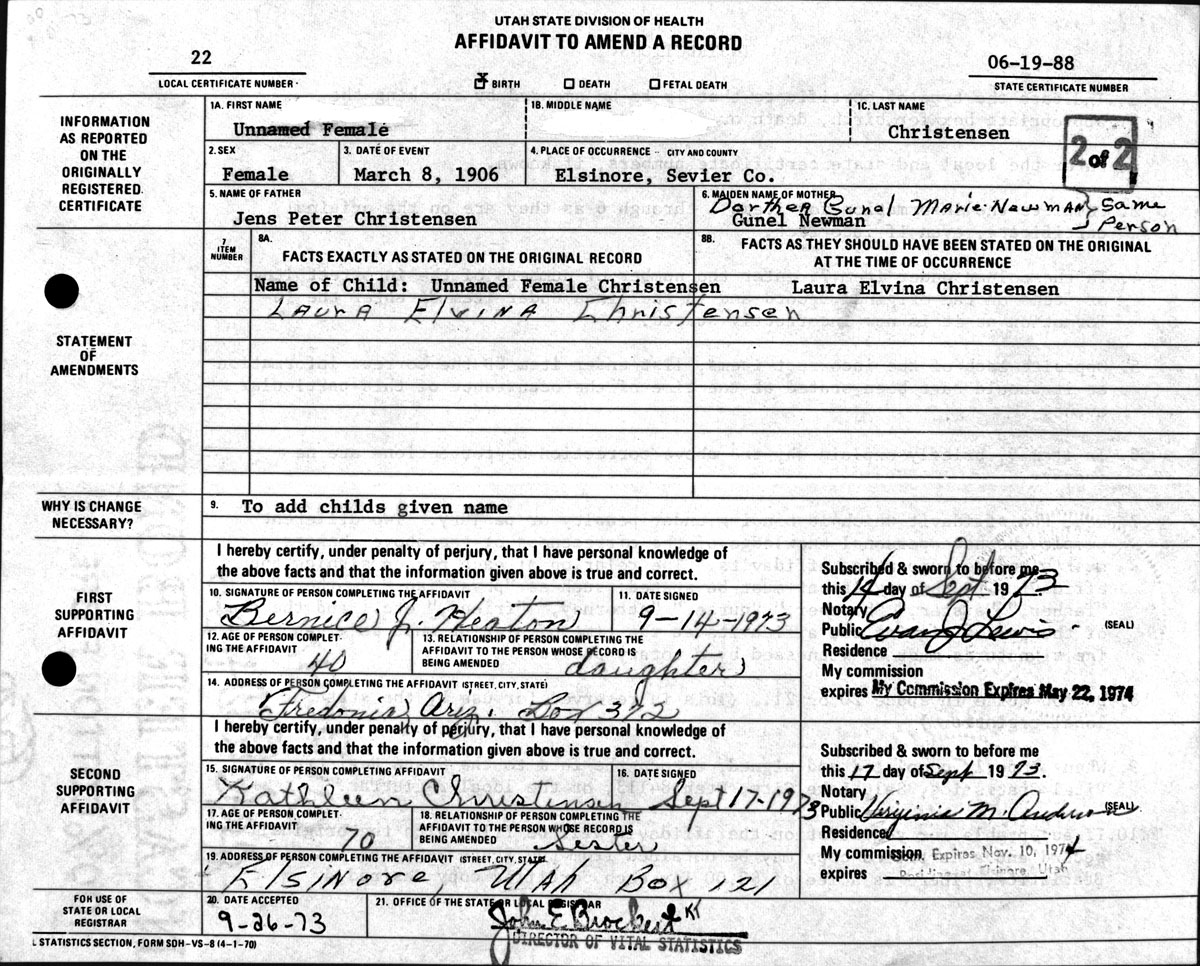 UTAH STATE DIVISION OF HEALTH
AFFIDAVIT TO AMEND A RECORD
22
LOCAL CERTIFICATE NUMBER
x BIRTH DEATH FETAL DEATH
06-19-88
STATE CERTIFICATE NUMBER
INFORMATION AS REPORTED ON THE ORIGINALLY REGISTERED CERTIFICATE
1A. FIRST NAME
Unnamed Female
1B. MIDDLE NAME
1C. LAST NAME
Christensen
2 of 2
2. SEX
Female
3. DATE OF EVENT
March 8, 1906
4. PLACE OF OCCURRENCE - CITY AND COUNTY
Elsinore, Sevier Co.
5. NAME OF FATHER
Jens Peter Christensen
6. MAIDEN NAME OF MOTHER
Dorthea Gunel Marie Newman } Same Person
Gunel Newman
7 ITEM NUMBER
8A. FACTS EXACTLY AS STATED ON THE ORIGINAL RECORD
8B. FACTS AS THEY SHOULD HAVE BEEN STATED ON THE ORIGINAL AT THE TIME OF OCCURRENCE
STATEMENT OF AMENDMENTS
Name of Child: Unnamed Female Christensen
Laura Elvina Christensen
Laura Elvina Christensen
WHY IS CHANGE NECESSARY?
9. To add childs given name
FIRST SUPPORTING AFFIDAVIT
I hereby certify, under penalty of perjury, that I have personal knowledge of
the above facts and that the information given above is true and correct.
10. SIGNATURE OF PERSON COMPLETING THE AFFIDAVIT
Bernice J. Heaton
11. DATE SIGNED
9-14-1973
12. AGE OF PERSON COMPLETING THE AFFIDAVIT
40
13. RELATIONSHIP OF PERSON COMPLETING THE AFFIDAVIT TO THE PERSON WHOSE RECORD IS BEING AMENDED
daughter
14. ADDRESS OF PERSON COMPLETING THE AFFIDAVIT (STREET, CITY, STATE)
Fredonia, Ariz. Box 392
Subscribed & sworn to before me
this 14 day of Sept. 1973
Notary
Public Evan J Lewis (SEAL)
Residence
My commission
expires My Commission Expires May 22, 1974
SECOND SUPPORTING AFFIDAVIT
I hereby certify, under penalty of perjury, that I have personal knowledge of
the above facts and that the information given above is true and correct.
15. SIGNATURE OF PERSON COMPLETING AFFIDAVIT
Kathleen Christensen
16. DATE SIGNED
Sept 17-1973
17. AGE OF PERSON COMPLETING THE AFFIDAVIT
70
18. RELATIONSHIP OF PERSON COMPLETING THE AFFIDAVIT TO THE PERSON WHOSE RECORD IS BEING AMENDED
Sester
19. ADDRESS OF PERSON COMPLETING THE AFFIDAVIT (STREET, CITY, STATE)
Elsinore, Utah Box 121
Subscribed & sworn to before me
this 17 day of Sept 1973.
Notary
Public Virginia M. Anderson (SEAL)
Residence
My commission Com. Expires Nov. 10, 1974
expires Residing at Elsinore, Utah
FOR USE OF STATE OR LOCAL REGISTRAR
20. DATE ACCEPTED
9-26-73
21. OFFICE OF THE STATE OR LOCAL REGISTRAR
John E Brockert KT
DIRECTOR OF VITAL STATISTICS
STATISTICS SECTION, FORM SDH-VS-8 (4-1-70)